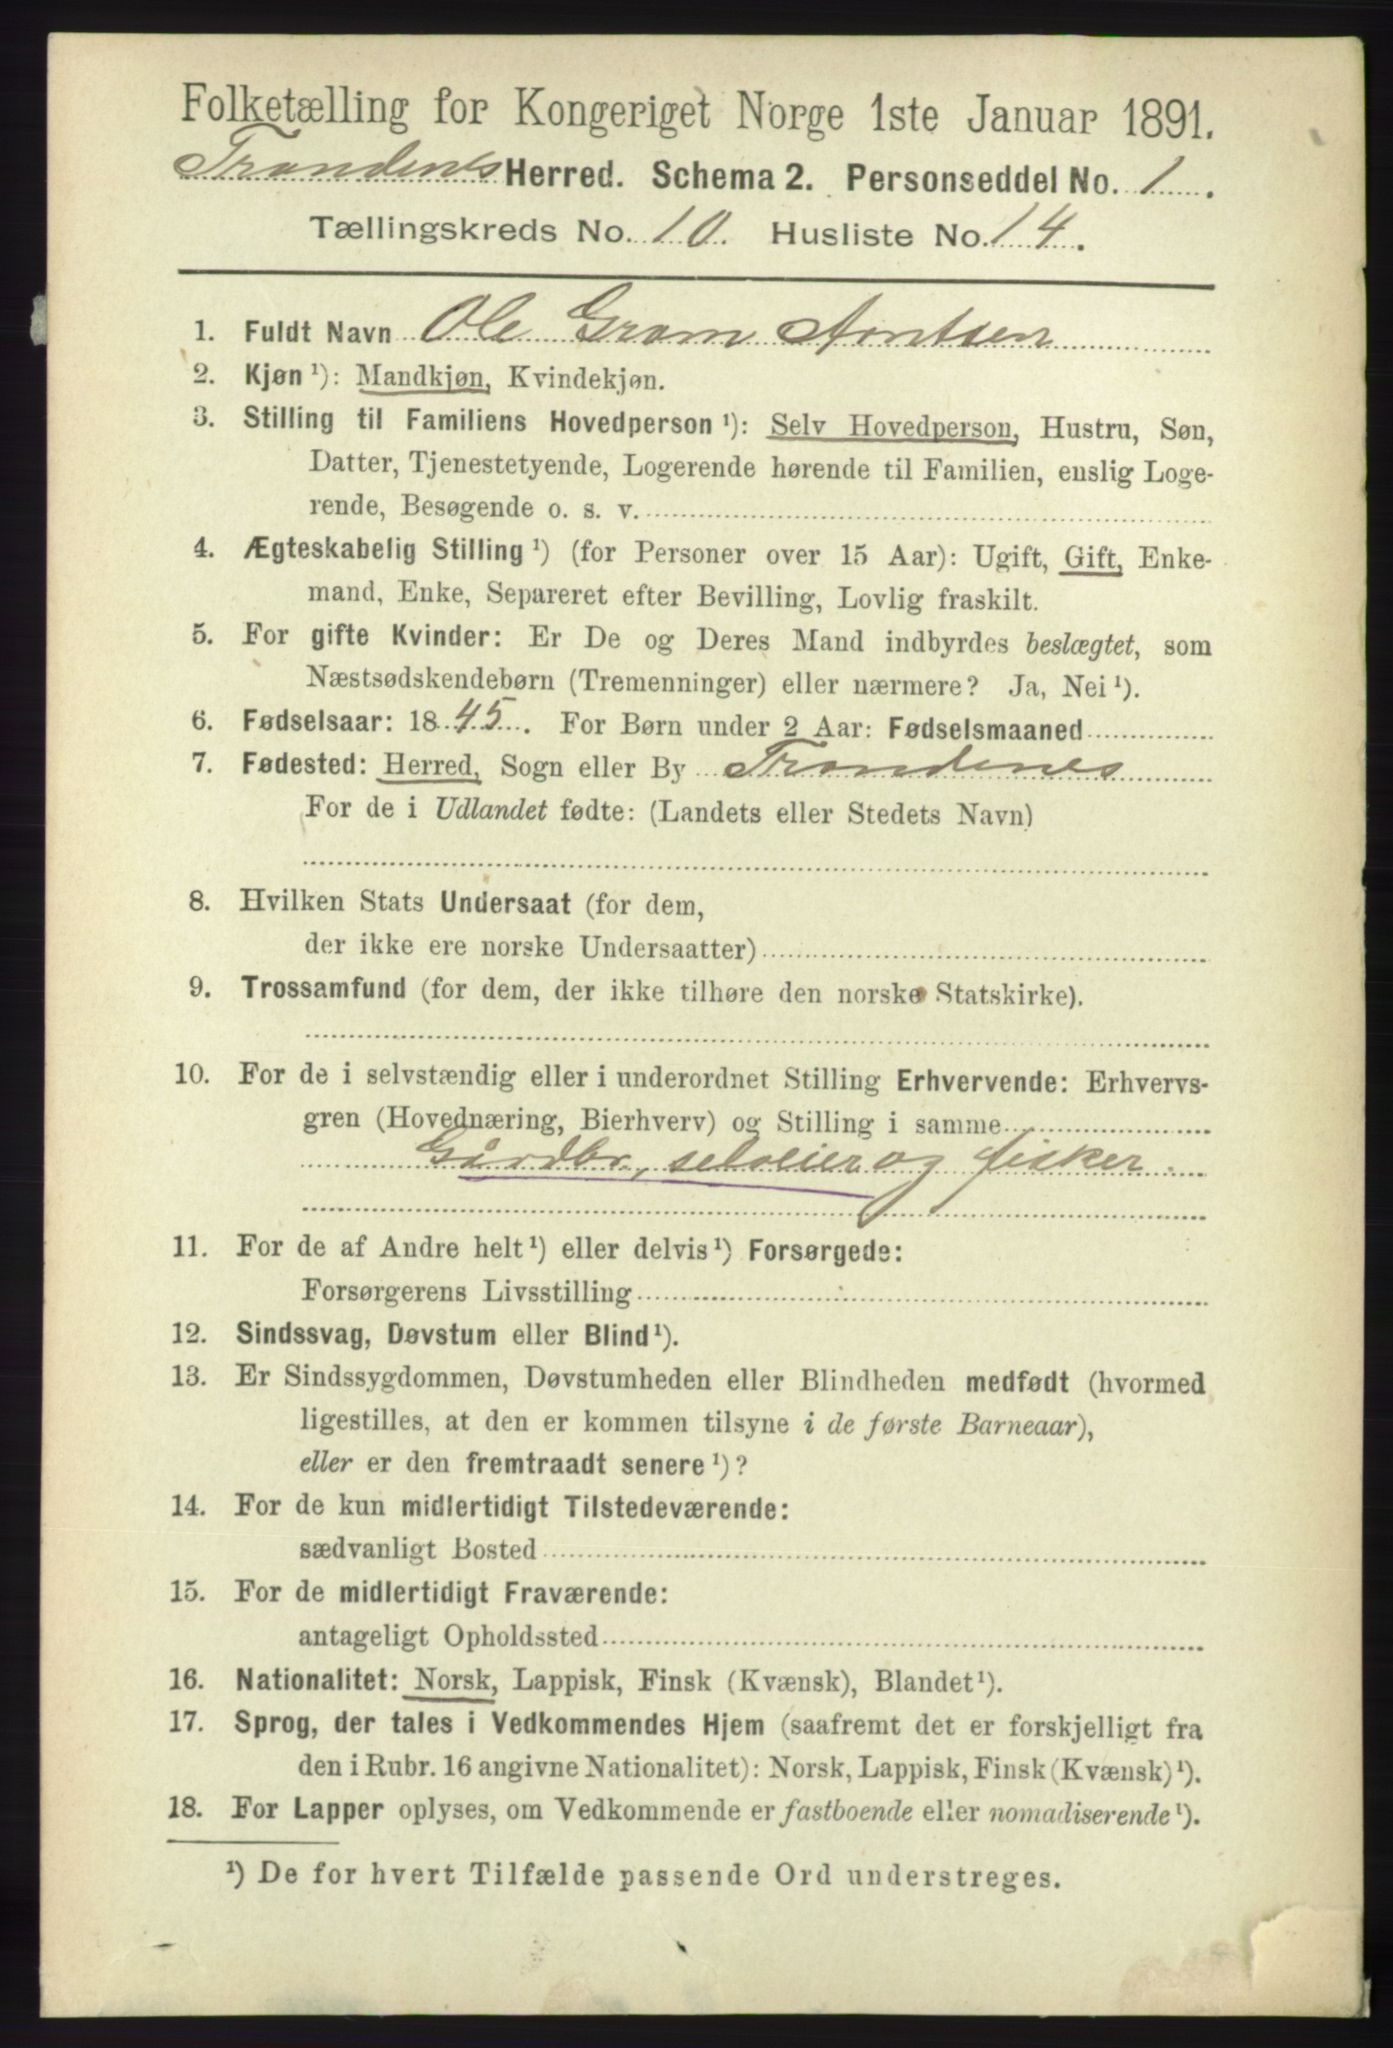 Folketælling for Kongeriget Norge 1ste Januar 1891.
Trondenes Herred. Schema 2. Personseddel No. 1.
Tællingskreds No. 10. Husliste No. 14.
1. Fuldt Navn Ole Gram Arntsen
2. Kjøn ¹): Mandkjøn, Kvindekjøn.
3. Stilling til Familiens Hovedperson ¹): Selv Hovedperson, Hustru, Søn,
Datter, Tjenestetyende, Logerende hørende til Familien, enslig Loge-
rende, Besøgende o. s. v.
4. Ægteskabelig Stilling ¹) (for Personer over 15 Aar): Ugift, Gift, Enke-
mand, Enke, Separeret efter Bevilling, Lovlig fraskilt.
5. For gifte Kvinder: Er De og Deres Mand indbyrdes beslægtet, som
Næstsødskendebørn (Tremenninger) eller nærmere? Ja, Nei ¹).
6. Fødselsaar: 1845. For Børn under 2 Aar: Fødselsmaaned
7. Fødested: Herred, Sogn eller By Trondenes
For de i Udlandet fødte: (Landets eller Stedets Navn)
8. Hvilken Stats Undersaat (for dem,
der ikke ere norske Undersaatter)
9. Trossamfund (for dem, der ikke tilhøre den norske Statskirke).
10. For de i selvstændig eller i underordnet Stilling Erhvervende: Erhvervs-
gren (Hovednæring, Bierhverv) og Stilling i samme
Gårdbr, selveier og fisker.
11. For de af Andre helt ¹) eller delvis ¹) Forsørgede:
Forsørgerens Livsstilling
12. Sindssvag, Døvstum eller Blind ¹).
13. Er Sindssygdommen, Døvstumheden eller Blindheden medfødt (hvormed
ligestilles, at den er kommen tilsyne i de første Barneaar),
eller er den fremtraadt senere ¹)?
14. For de kun midlertidigt Tilstedeværende:
sædvanligt Bosted
15. For de midlertidigt Fraværende:
antageligt Opholdssted
16. Nationalitet: Norsk, Lappisk, Finsk (Kvænsk), Blandet ¹).
17. Sprog, der tales i Vedkommendes Hjem (saafremt det er forskjelligt fra
den i Rubr. 16 angivne Nationalitet): Norsk, Lappisk, Finsk (Kvænsk) ¹).
18. For Lapper oplyses, om Vedkommende er fastboende eller nomadiserende ¹).
¹) De for hvert Tilfælde passende Ord understreges.